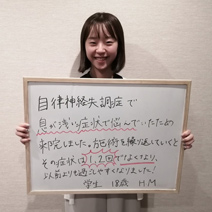 自律神経失調症で
息が浅い症状で悩んでいたため
来院しました。施術を繰り返していくと
その症状は1,2回でなくなり、
以前よりも過ごしやすくなりました！
学生 18歳 H.M